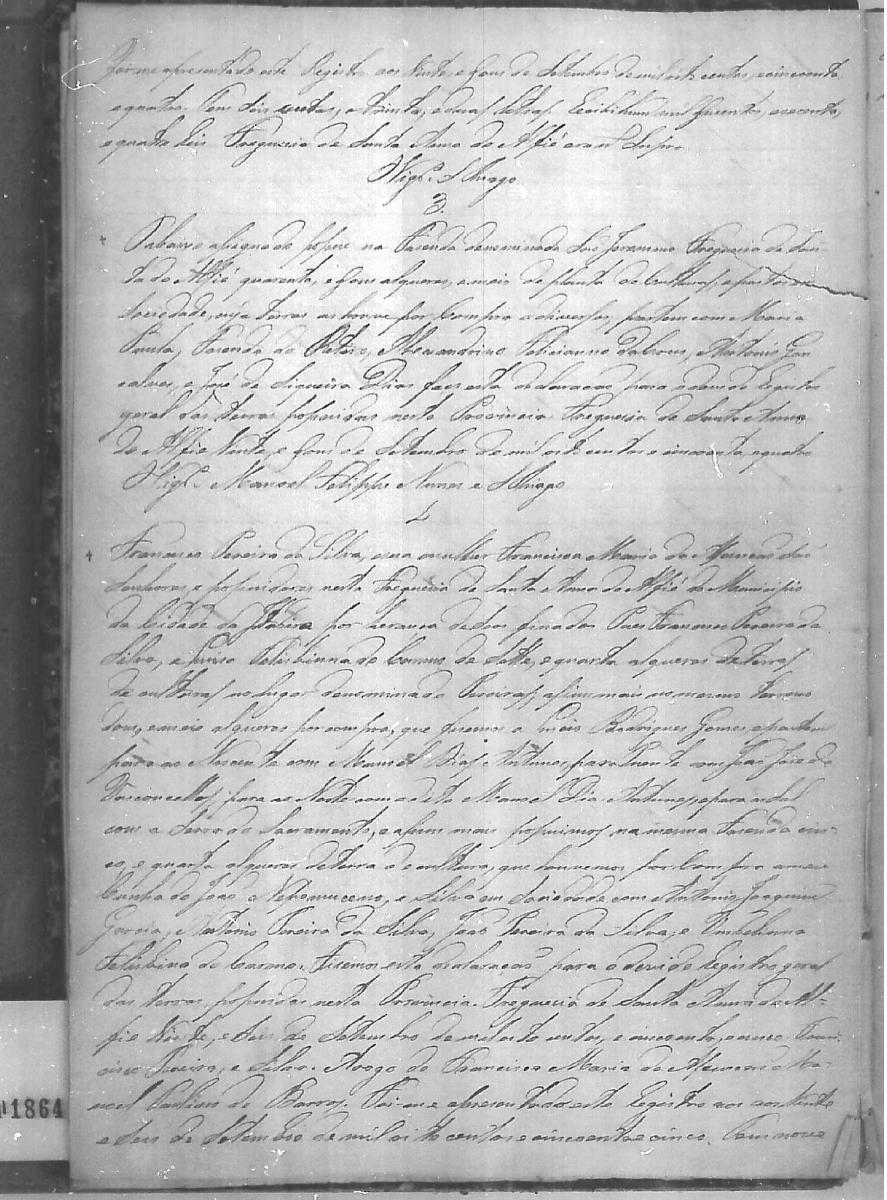 foi me apresentado este Registro aos Vinte, e hum de Setembro de mil oito centos, e cincoenta,
e quatro. Tem seis centas, e trinta, e duas letras. Recibi hum mil duzentos, e secenta,
e quatro reis Freguezia de Santa Anna do Alfié era ut Supra.
Vigr.º Thiago
3.
O abaixo assignado possue na Fazenda denominada São Jeronimo Freguezia de San-
ta do Alfié quarenta, e hum alqueres, e meio de planta de Culturas, e pastos em
Sociedade, cuja terras as houve por Compra a diversos, partem com Maria
Paula, Fazenda do Retiro, Alexandrino Felicianno da Crus, Antonio Gon
calves, e José de Siqueira Dias faço esta declaracao para o devido Registro
geral das terras possuidas nesta Provincia Freguezia de Santa Anna
do Alfié Vinte, e hum de Setembro de mil oito centos e cincoenta, e quatro
Vigr.º Manoel Felippe Nunes e Thiago
4
Francisco Pereira da Silva, e sua mulher Francisca Maria da são
Senhores, e possuidores nesta Freguezia de Santa Anna do Alfié do Municipio
da Cidade da Itabira por heranca de seos finados Paes Francisco Pereira da
Silva, e Felisbinna do Carmo de Sette, e quarta alqueres de terras
de culturas no lugar denominado Pereiras, assim mais no mesmo terreno
dous, e meio alqueres por compra, que fizemos a Lucio Rodrigues Gomes, e partem
para ao Nascente com Manoel Dias Antunes, para Poente com João José de
Vasconcellos, para ao Norte com o dito Manoel Dia Antunes, e para o Sul
com a Serra do Sacramento, e assim mais possuimos na mesma Fazenda cin-
co, e quarta alqueres de terra de cultura, que houvemos por Compra a meu
Cunhado João Nepomuceno, e Silva em Sociedade com Antonio Joaquim
Garcia, Antonio Pereira da Silva, João Pereira da Silva, e Umbelinna
Felisbina do Carmo. Fizemos esta declaracao para o devido Registro geral
das terras, possuidas nesta Provincia. Freguezia de Santa Anna do Al-
fié Vinte, e Seis de Setembro de mil oito centos, e cincoenta, e cinco. Fran-
cisco Pereira, e Silva. Arogo de Francisca Maria de Ma-
noel Paulino de Barros. Foi-me apresentado este Registro aos vinte
e Seis de Setembro de mil oito centos e cincoenta e cinco. Tem nove
1864